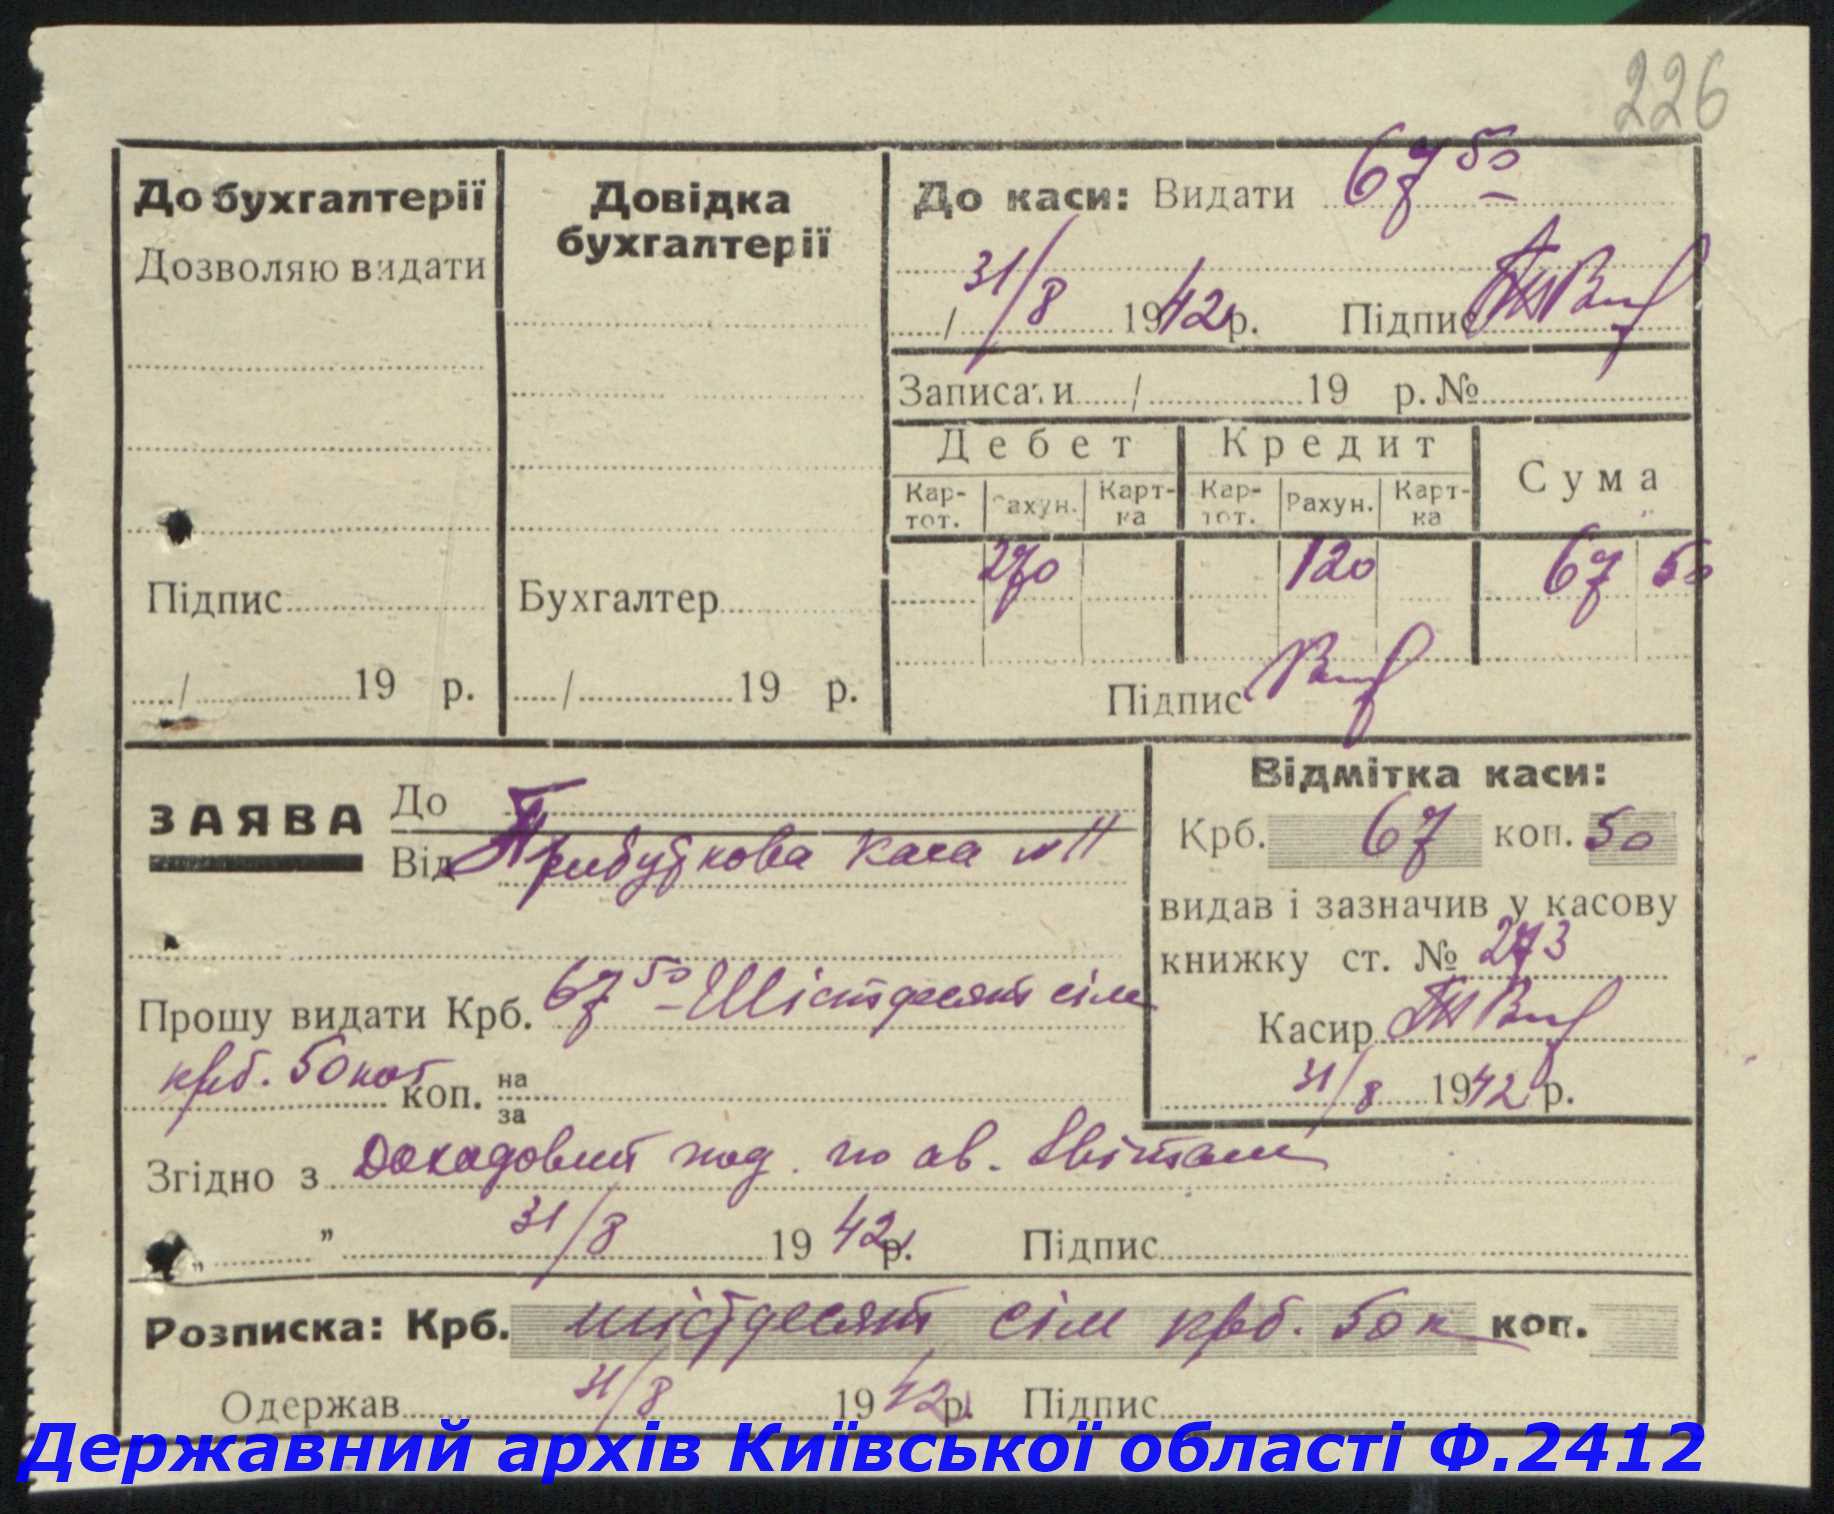 226
До бухгалтерії
Дозволяю видати
Підпис
/ 19 р.
Довідка
бухгалтерії
Бухгалтер
/ 19 р.
До каси: Видати 67 50
31/8
/ 1942 р. Підпис
Записати / 19 р. №
Дебет Кредит Сума
Кар-тот. Рахун. Карт-ка Кар-тот. Рахун. Карт-ка
270 120 67 50
Підпис
ЗАЯВА До
Від Прибуткова каса № 11
Прошу видати Крб. 67 50 – Шістдесят сім
крб. 50 коп коп. на
за
Відмітка каси:
Крб. 67 коп. 50
видав і зазначив у касову
книжку ст. № 273
Касир
31/8 1942 р.
Згідно з под. по ав.
„ ” 31/8 1942 р. Підпис
Розписка: Крб. шістдесят сім крб. 50 к коп.
Одержав 31/8 1942 р. Підпис
Державний архів Київської області Ф.2412